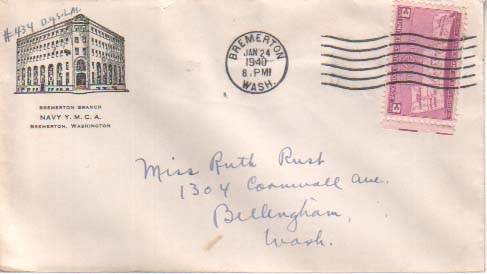 #434
BREMERTON BRANCH
NAVY Y. M. C. A.
BREMERTON, WASHINGTON
BREMERTON
JAN 24
1940
8 PM
WASH.
3¢
3¢
Miss Ruth Rust
1304 Cornwall Ave.
Bellingham,
Wash.